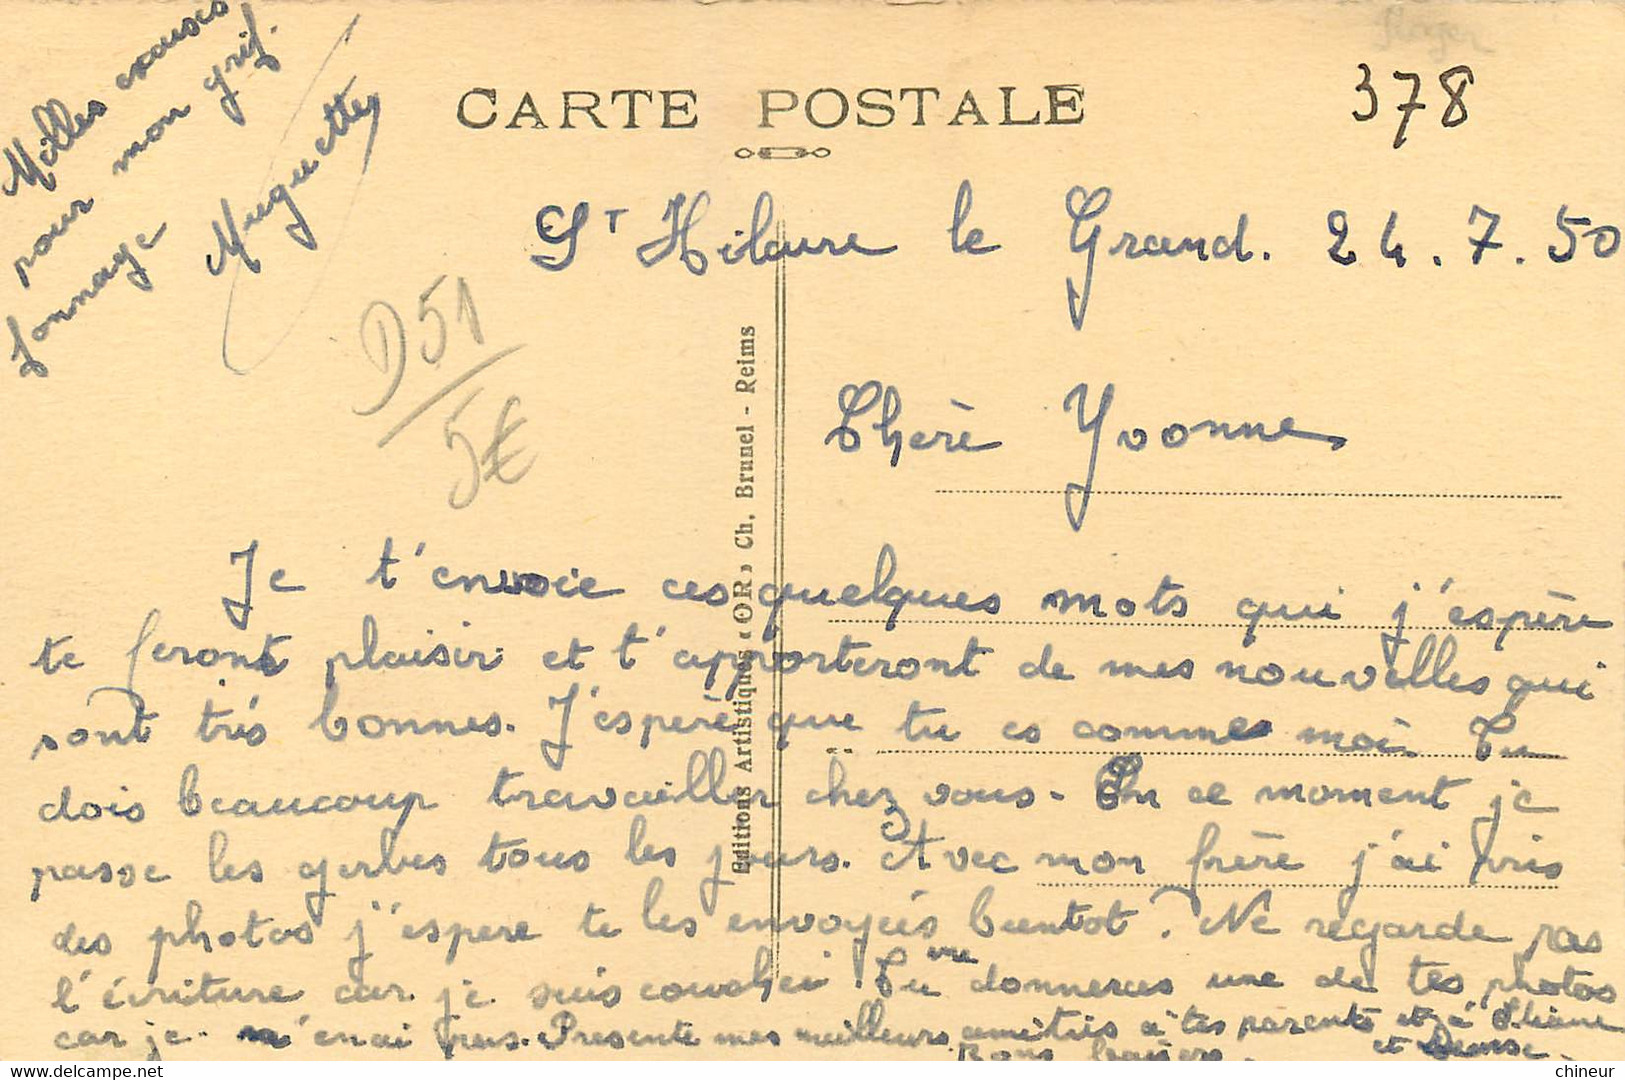 Roger
378
CARTE POSTALE
Milles excuses
pour mon grif
fonnage
Muguette
D51
5€
Sᵀ Hilaire le Grand. 24.7.50
Chérè Yvonne
Editions Artistiques «OR» Ch. Brunel - Reims
Je t'envoie ces quelques mots qui j'espère
te feront plaisir et t'apporteront de mes nouvelles qui
sont très bonnes. J'espère que tu es comme moi. Tu
dois beaucoup travailler chez vous. En ce moment je
passe les gerbes tous les jours. Avec mon frère j'ai pris
des photos j'espere te les envoyés bientot. Ne regarde pas
l'écriture car je suis couchei. Tu me donneras une de tes photos
car je n'en ai pas. Presente mes meilleurs amitiés à tes parents et à Eliane
et Denise.
Bons baisers.
chineur